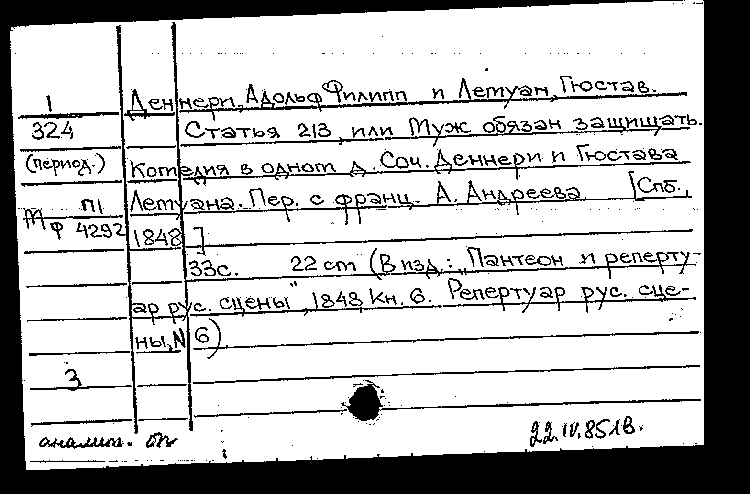 Деннери, Адольф Филипп и Лемуан, Гюстав.
1
324
Статья 213, или Муж обязан защищать.
(период.)
Комедия в одном д. Соч. Деннери и Гюстава
Лемуана. Пер. с франц. А. Андреева [Спб.,
м п1
ф 4292
1848]
33с. 22 cm (В изд.: "Пантеон и реперту-
ар рус. сцены", 1848, Кн. 6. Репертуар рус. сце-
ны, N 6)
3
аналит. оп
22.IV.85